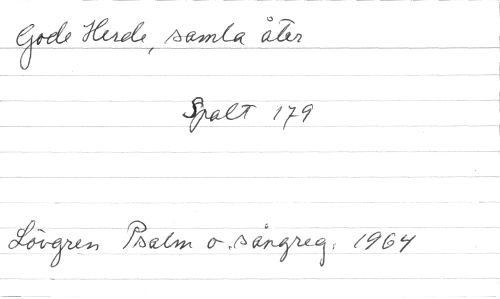 Gode Herde, samla åter
Spalt 179
Lövgren Psalm o. sångreg. 1964